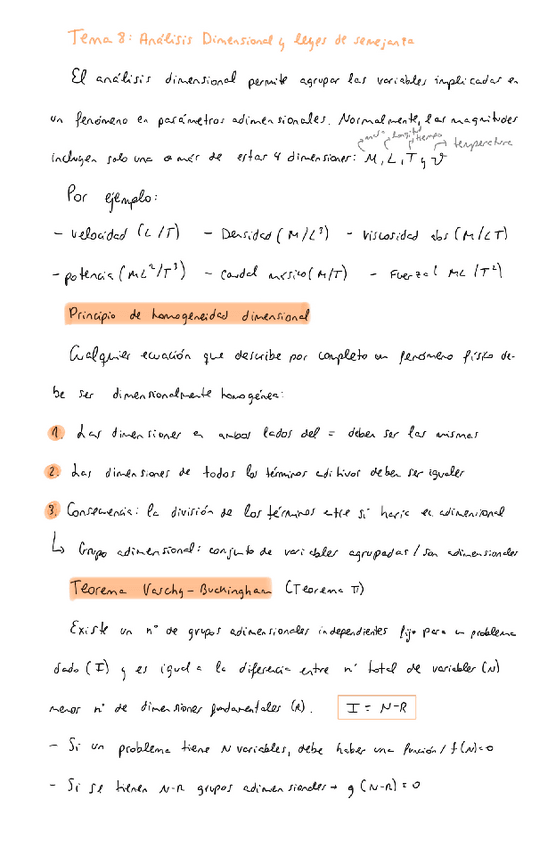 Tema 8: Análisis Dimensional y leyes de semejanza
El análisis dimensional permite agrupar las variables implicadas en
un fenómeno en parámetros adimensionales. Normalmente, las magnitudes
masa longitud tiempo temperatura
incluyen solo una o más de estas 4 dimensiones: M, L, T y ϑ
Por ejemplo:
- velocidad (L/T) - Densidad (M/L³) - Viscosidad abs (M/LT)
- potencia (ML²/T³) - Caudal másico (M/T) - Fuerza ( ML /T²)
Principio de homogeneidad dimensional
Cualquier ecuación que describe por completo un fenómeno físico de-
be ser dimensionalmente homogénea:
1. Las dimensiones en ambos lados del = deben ser las mismas
2. Las dimensiones de todos los términos aditivos deben ser iguales
3. Consecuencia: la división de los términos entre sí haría adimensional
↳ Grupo adimensional: conjunto de variables agrupadas / son adimensionales
Teorema Vaschy-Buckingham (Teorema π)
Existe un nº de grupos adimensionales independientes fijo para un problema
dado (I) y es igual a la diferencia entre nº total de variables (N)
menos nº de dimensiones fundamentales (R). I = N-R
- Si un problema tiene N variables, debe haber una función / f(N)=0
- Si se tienen N-R grupos adimensionales → g (N-R) = 0